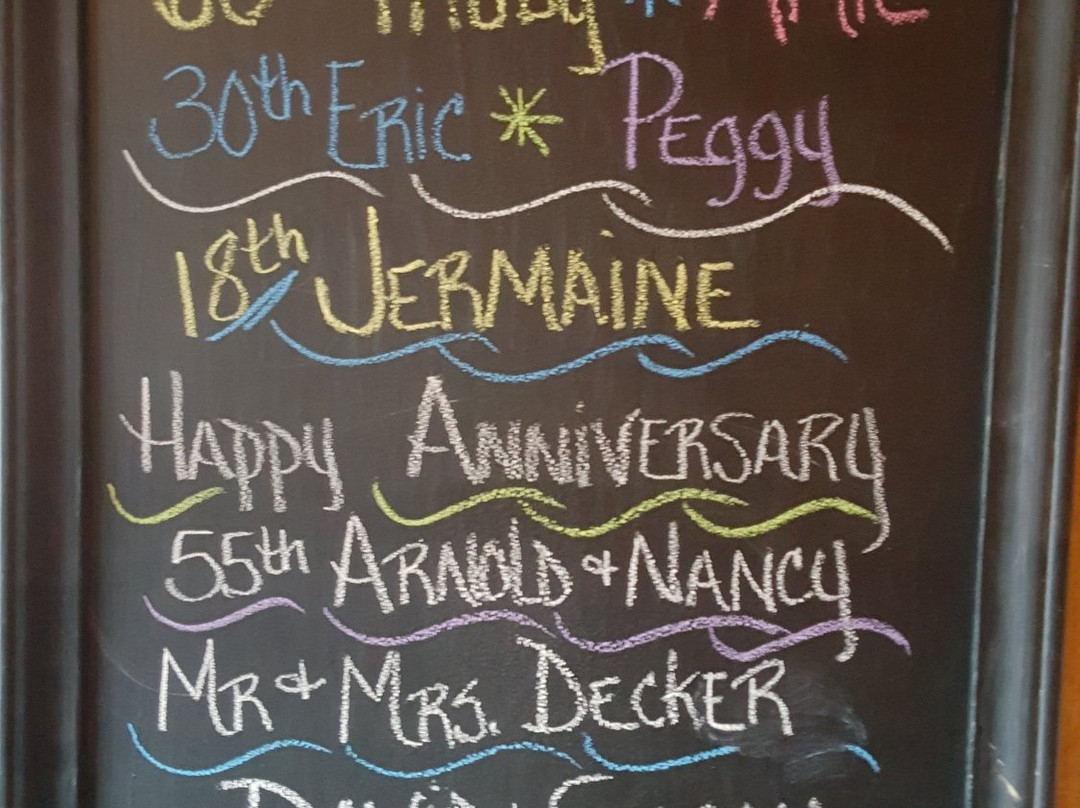 30th Eric * Peggy
18th Jermaine
Happy Anniversary
55th Arnold & Nancy
Mr & Mrs. Decker